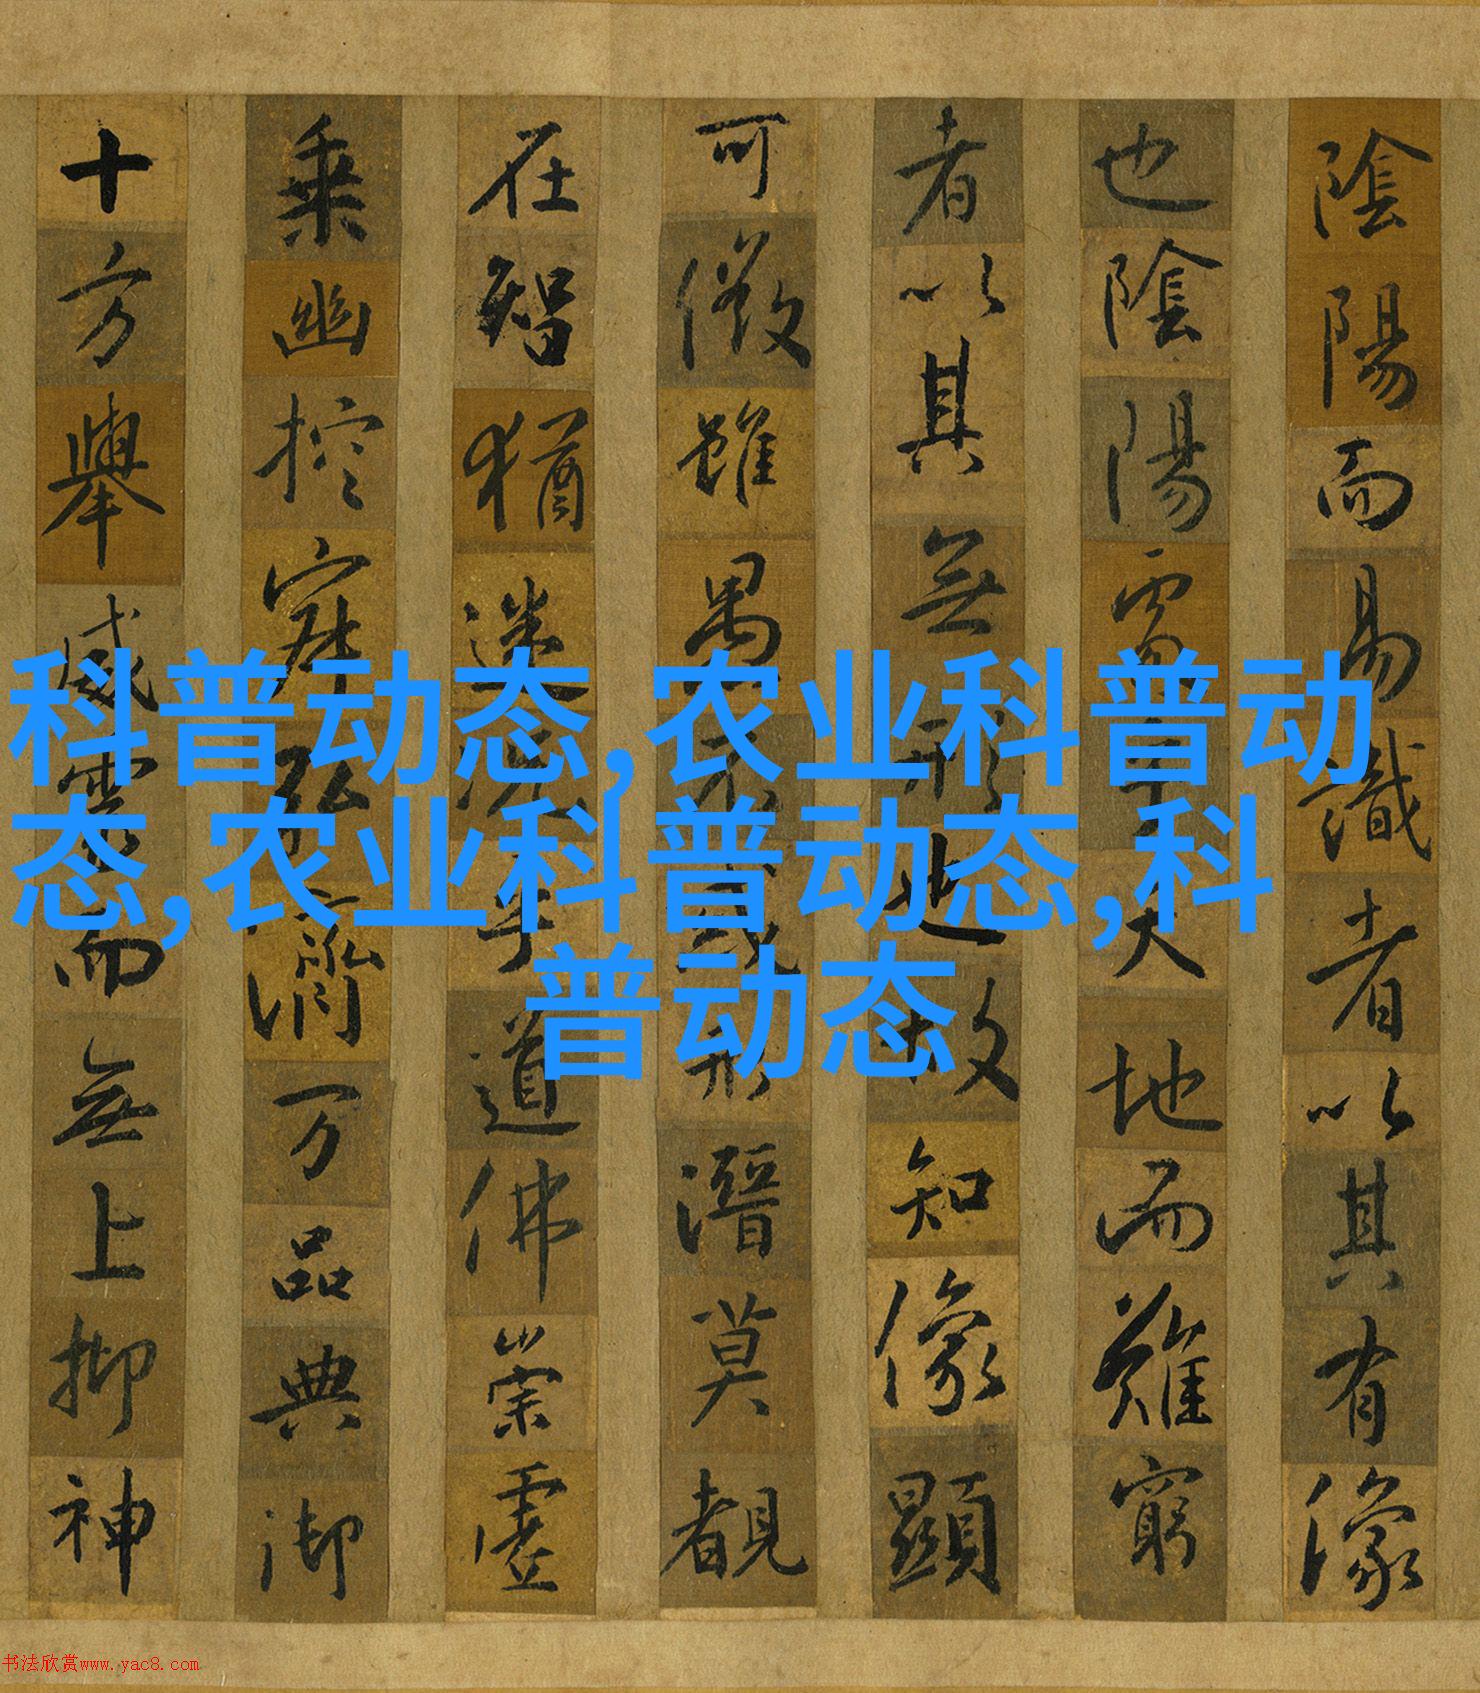 陰陽而易識者以其有像
也陰陽處乎天地而難窮
者以其無形也故知像顯
可徵雖愚不惑形潛莫覩
在智猶迷況乎道佛崇虛
乘幽控寂弘濟万品典御
十方舉威靈而無上抑神
科普动态,农业科普动
态,农业科普动态,科
普动态
书法欣赏www.yac8.com